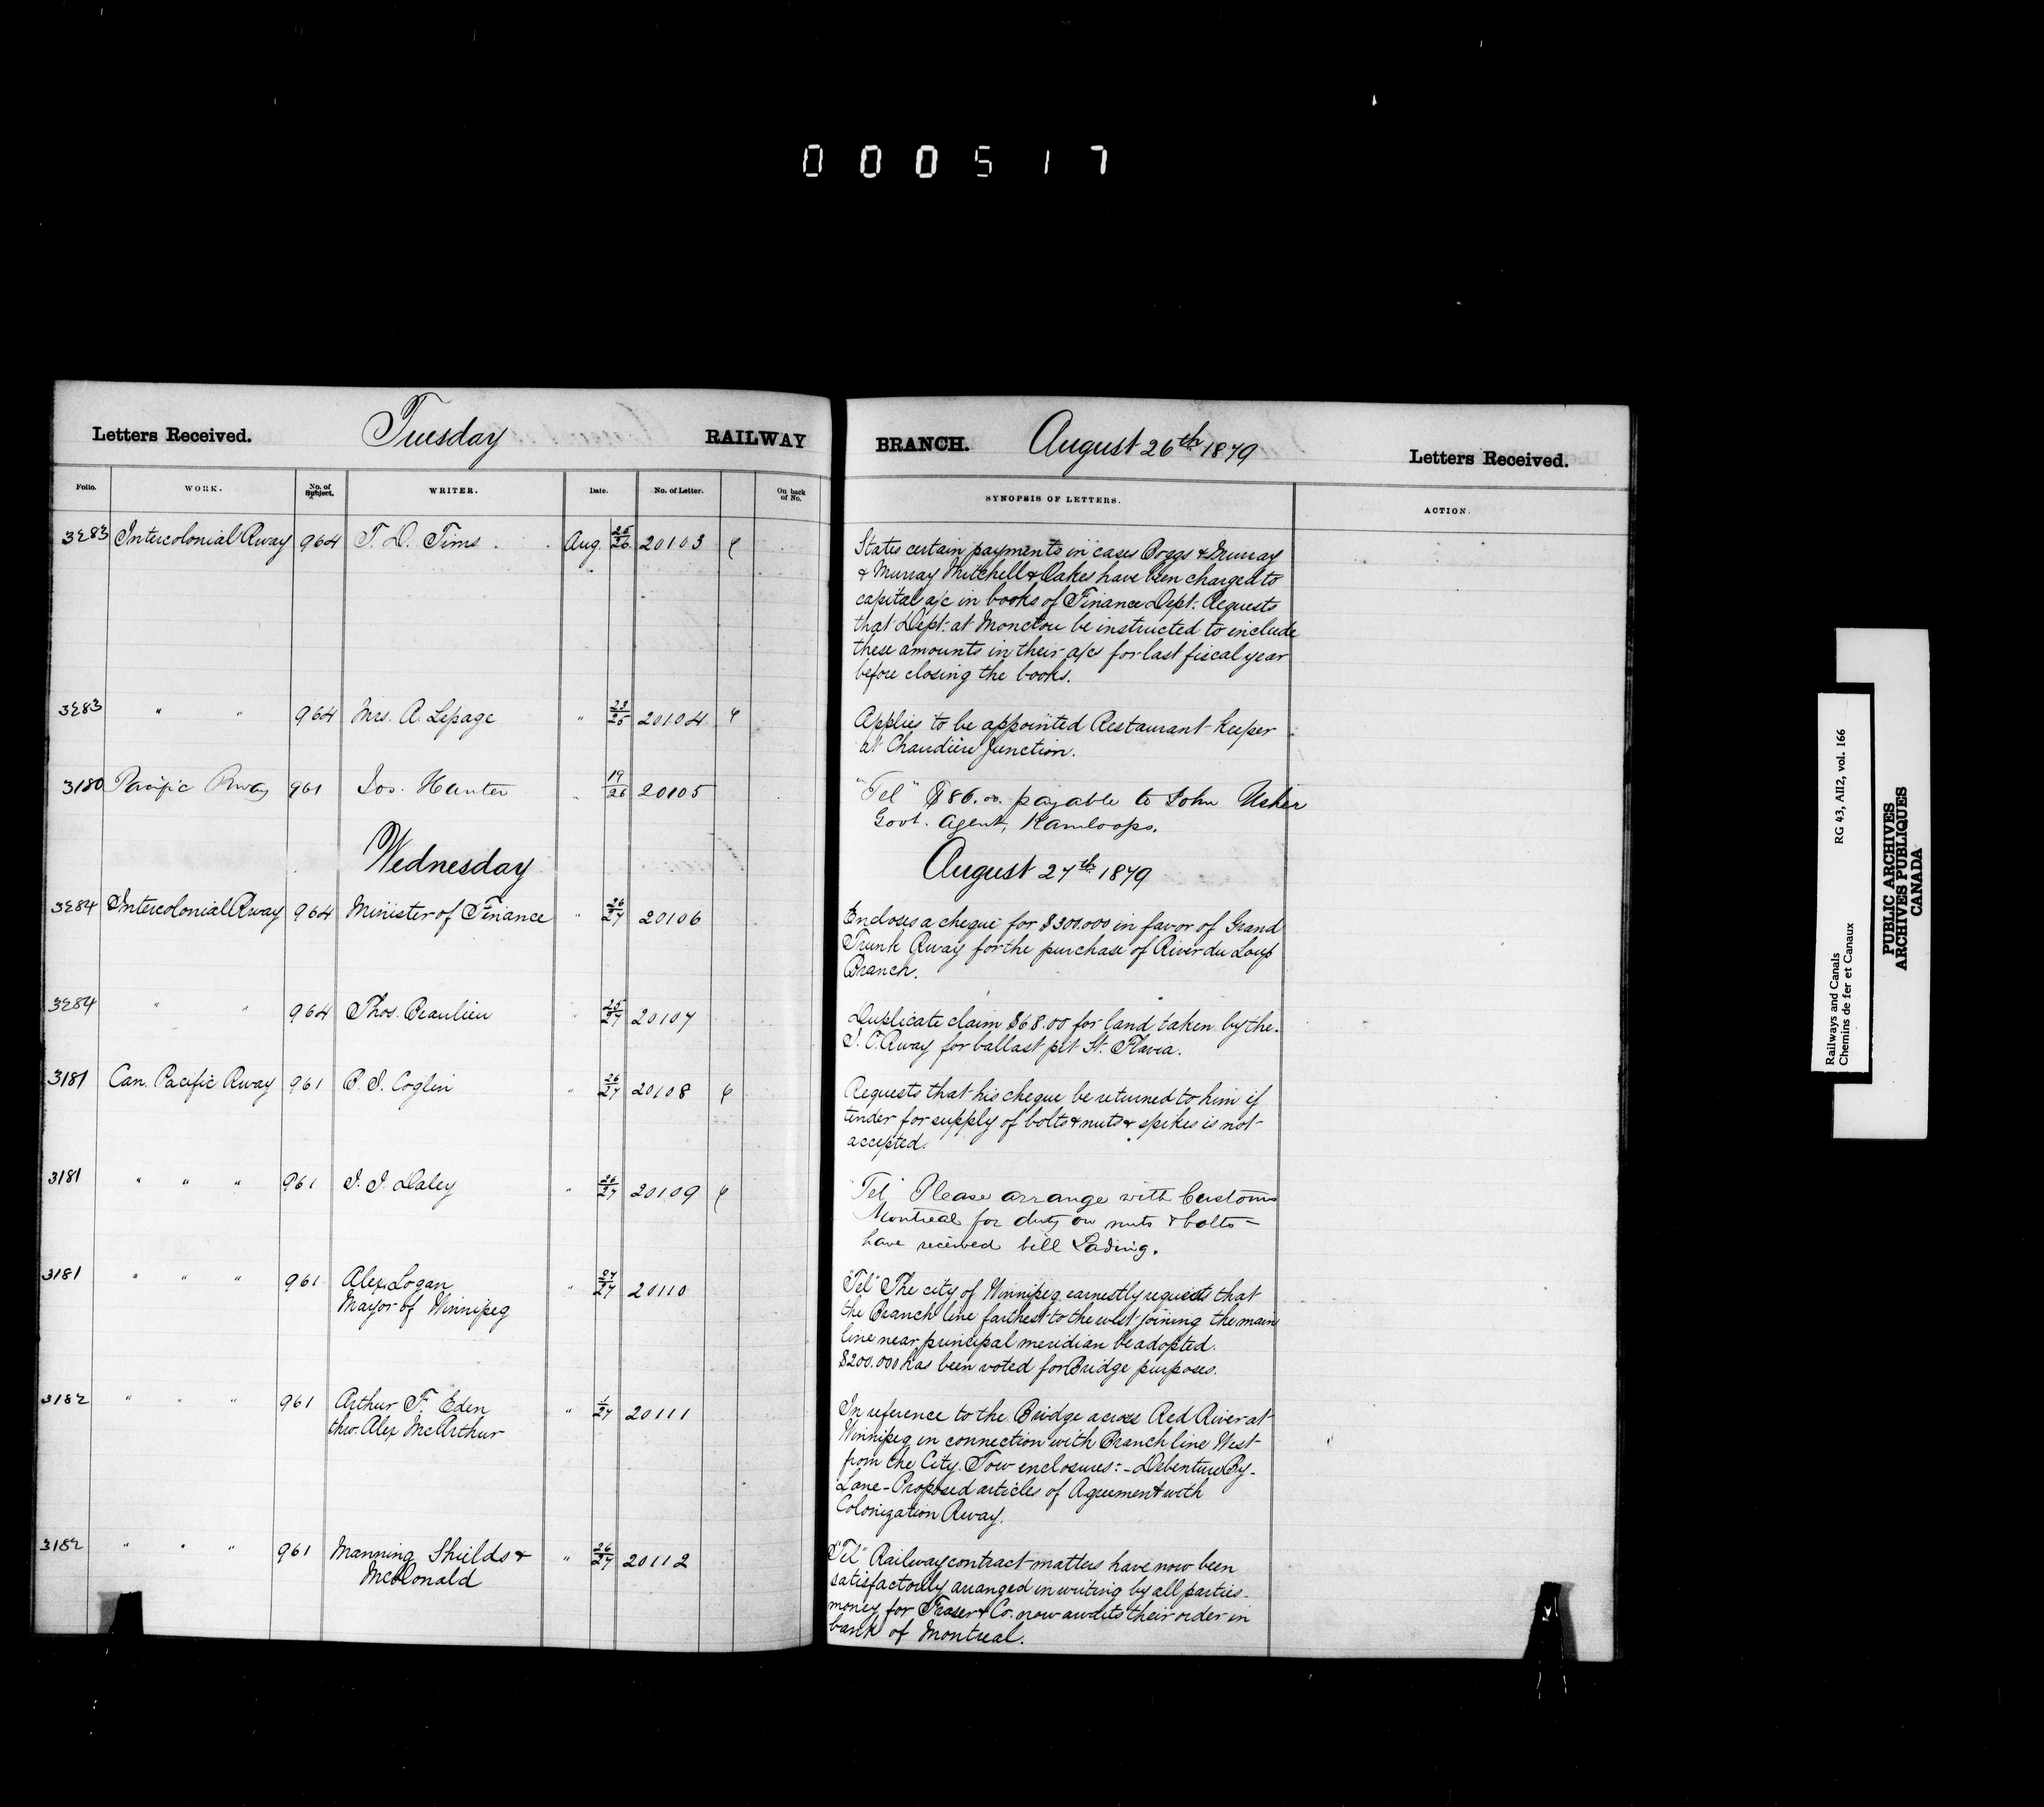 000517
Letters Received. Tuesday RAILWAY BRANCH. August 26th 1879 Letters Received.
Folio. WORK. No. of Subject. WRITER. Date. No. of Letter. On back of No. SYNOPSIS OF LETTERS. ACTION.
3283 Intercolonial Rway 964 T. D. Tims Aug. 25/26 20103
States certain payments in cases Boggs & Murray
& Murray Mitchell & Oakes have been charged to
capital a/c in books of Finance Dept: Requests
that Dept: at Moncton be instructed to include
these amounts in their a/cs for last fiscal year
before closing the books.
3283 " " 964 Mrs. A. Lepage " 23/25 20104
Applies to be appointed Restaurant-keeper
at Chaudière Junction.
3180 Pacific Rway 961 Jos. Hunter " 19/26 20105
"Tel" $86.00 payable to John Usher
Govt. Agent, Kamloops.
Wednesday August 27th 1879
3284 Intercolonial Rway 964 Minister of Finance " 26/27 20106
Encloses a cheque for $300.000 in favor of Grand
Trunk Rway for the purchase of River du Loup
Branch.
3284 " " 964 Thos. Beaulieu " 25/27 20107
Duplicate claim $68.00 for land taken by the
I. C. Rway for ballast pit St. Flavia.
3181 Can. Pacific Rway 961 B. J. Coglin " 26/27 20108
Requests that his cheque be returned to him if
tender for supply of bolts & nuts & spikes is not
accepted.
3181 " " " 961 J. J. Daley " 26/27 20109
"Tel" Please arrange with Customs
Montreal for duty on nuts & bolts -
have received bill Lading.
3181 " " " 961 Alex. Logan " 27/27 20110
Mayor of Winnipeg
"Tel" The city of Winnipeg earnestly requests that
the Branch line farthest to the west joining the main
line near principal meridian be adopted.
$200.000 has been voted for Bridge purposes.
3182 " " " 961 Arthur F. Eden " 1/27 20111
thro. Alex McArthur
In reference to the Bridge across Red River at
Winnipeg in connection with Branch line West
from the City. Tow enclosures: - Debenture By-
Lane - Proposed articles of Agreement with
Colonization Rway.
3182 " " " 961 Manning Shields & " 26/27 20112
McDonald
"Tel" Railway contract matters have now been
satisfactorily arranged in writing by all parties -
money for Fraser & Co. now awaits their order in
bank of Montreal.
Railways and Canals RG 43, AII2, vol. 166
Chemins de fer et Canaux
PUBLIC ARCHIVES
ARCHIVES PUBLIQUES
CANADA